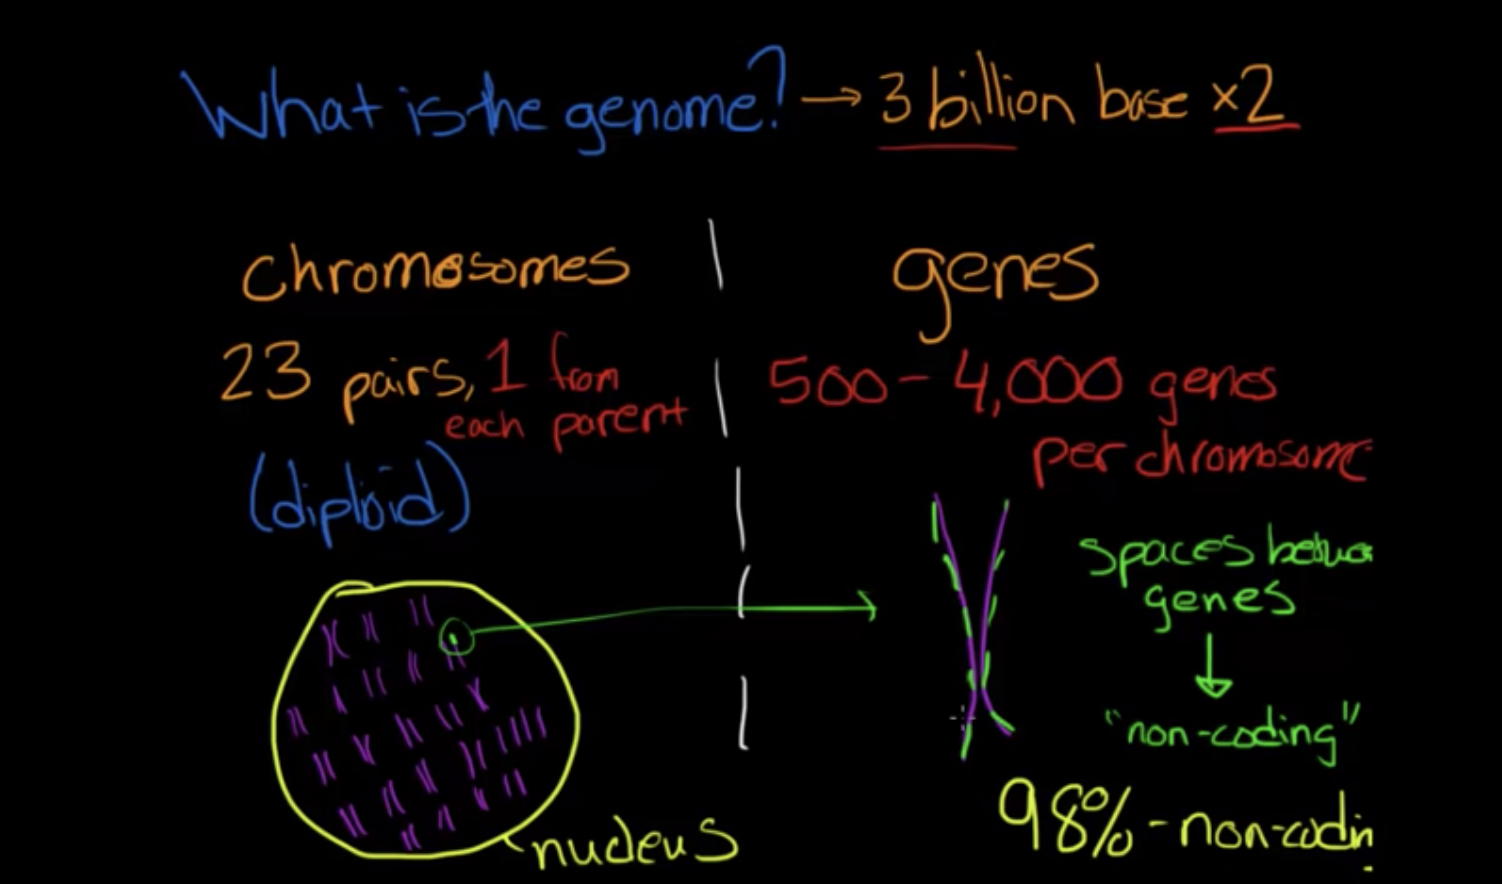 What is the genome? → 3 billion base ×2
chromosomes
23 pairs, 1 from
each parent
(diploid)
nucleus
genes
500 - 4,000 genes
per chromosome
spaces between
genes
"non-coding"
98% - non-codin